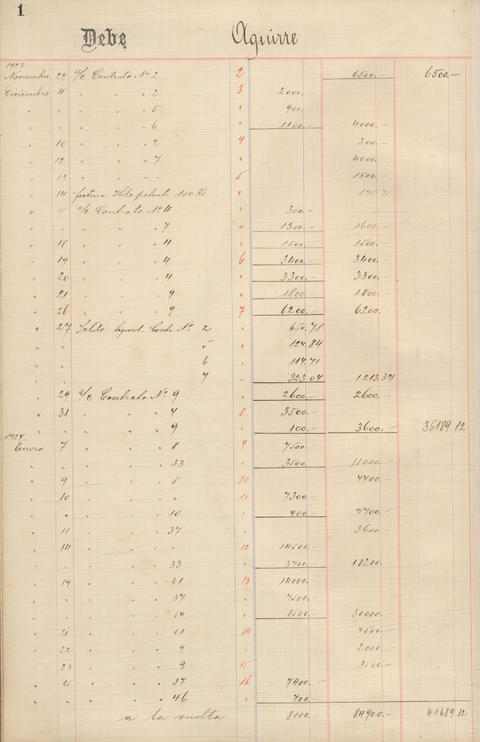 1
Debe Aguirre
1923
Noviembre 29 a/c Contrato Nº 2 2 6500.- 6500.-
Diciembre 11 " " " 2 3 2000.-
" " " " " 5 " 900.-
" " " " " 6 " 1100.- 4000.-
" 10 " " " 2 4 300.-
" 12 " " " 7 " 4000.-
" 13 " " " " 5 1800.-
" 14 factura Hilo patente 100 Ks " 175.75
" 15 a/c Contrato Nº 4 " 300.-
" " " " " 7 " 1300.- 1600.-
" 18 " " " 4 " 1500.- 1500.-
" 19 " " " 4 6 3400.- 3400.-
" 20 " " " 4 " 3300.- 3300.-
" 21 " " " 9 " 1800.- 1800.-
" 26 " " " 9 7 6200.- 6200.-
" 27 Saldo liquid. Conto Nº 2 " 650.78
" " 5 124.84
" " 6 114.71
" " 7 323.04 1213.37
" 29 a/c Contrato Nº 9 2600.- 2600.-
" 31 " " " 4 8 3500.-
" " " " " 9 " 100.- 3600.- 36189.12
1924
Enero 7 " " " 8 9 7500.-
" " " " " 33 3500.- 11000.-
" 9 " " " 8 10 4400.-
" 10 " " " " 11 7300.-
" " " " " 10 400.- 7700.-
" 11 " " " 37 3600.-
" 14 " " " " 12 14500.-
" " " " " 33 3700.- 18200.-
" 19 " " " 61 13 14000.-
" " " " " 37 7500.-
" " " " " 54 8500.- 30000.-
" 21 " " " 61 14 4500.-
" 22 " " " 9 " 2000.-
" 23 " " " 9 15 3500.-
" 25 " " " 37 16 7400.-
" " " " " 46 " 700.-
a la vuelta 8100.- 84900.- 41689.12